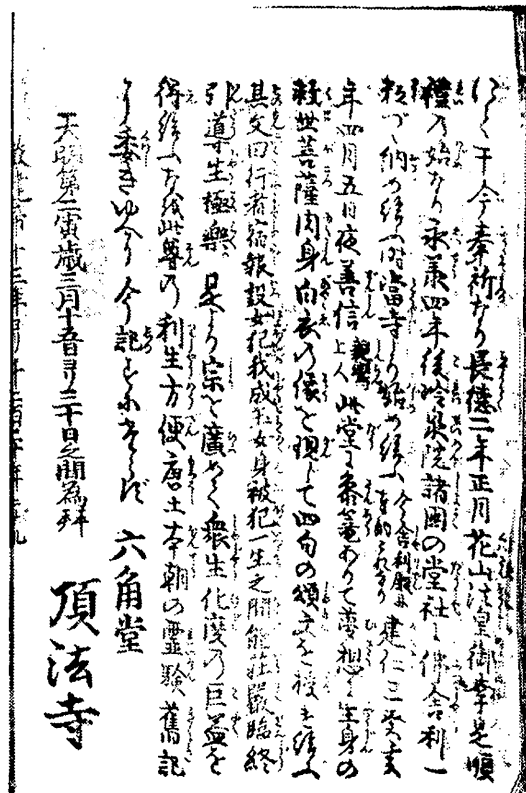 于今奉祈なり長徳二年正月花山法皇御幸是順
禮の始なり永義四年後冷泉院諸国の堂社に佛舎利一
粒づゝ納め給ふ時當寺にも納め給ふ建仁三癸亥
年四月五日夜善信上人親鸞此堂に参篭ありて夢想に生身の
救世菩薩肉身白衣の像を現じて四句の頌文を授た給ふ
其文曰行者宿報設女犯我成玉女身被犯一生之間能荘嚴臨終
引導生極樂是より宗を廣めて衆生化度の巨益を
得給ふ此尊の利生方便唐土本朝の霊驗舊記
に委きゆへ今記 六角堂
天明第二寅歳三月十五日ヨリ二十日之間為拜
頂法寺